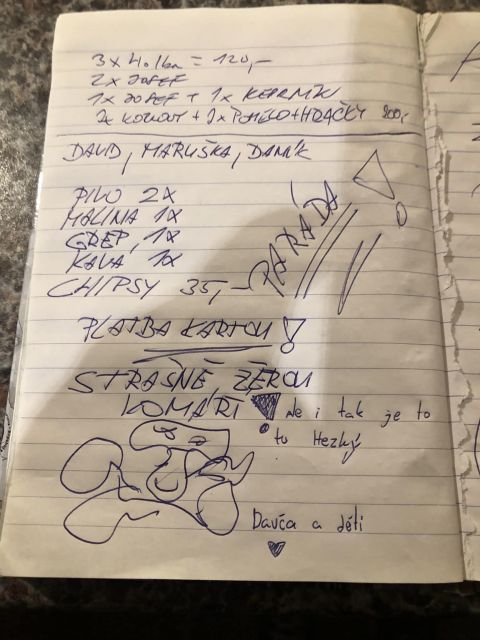 3x Holba = 120,-
2x JOSEF
1x JOSEF + 1x KEPRNÍK
2x KOHOUT + 1x POMELO + HRAČKY 200,-
DAVID, MARUŠKA, DANÍK
PIVO 2X
MALINA 1X
GREP, 1X
KÁVA 1X
CHIPSY 35,-
PARÁDA!
PLATBA KARTOU!
STRAŠNĚ ŽEROU
KOMÁŘI!
Ne i tak je to
tu Hezký
Davča a děti